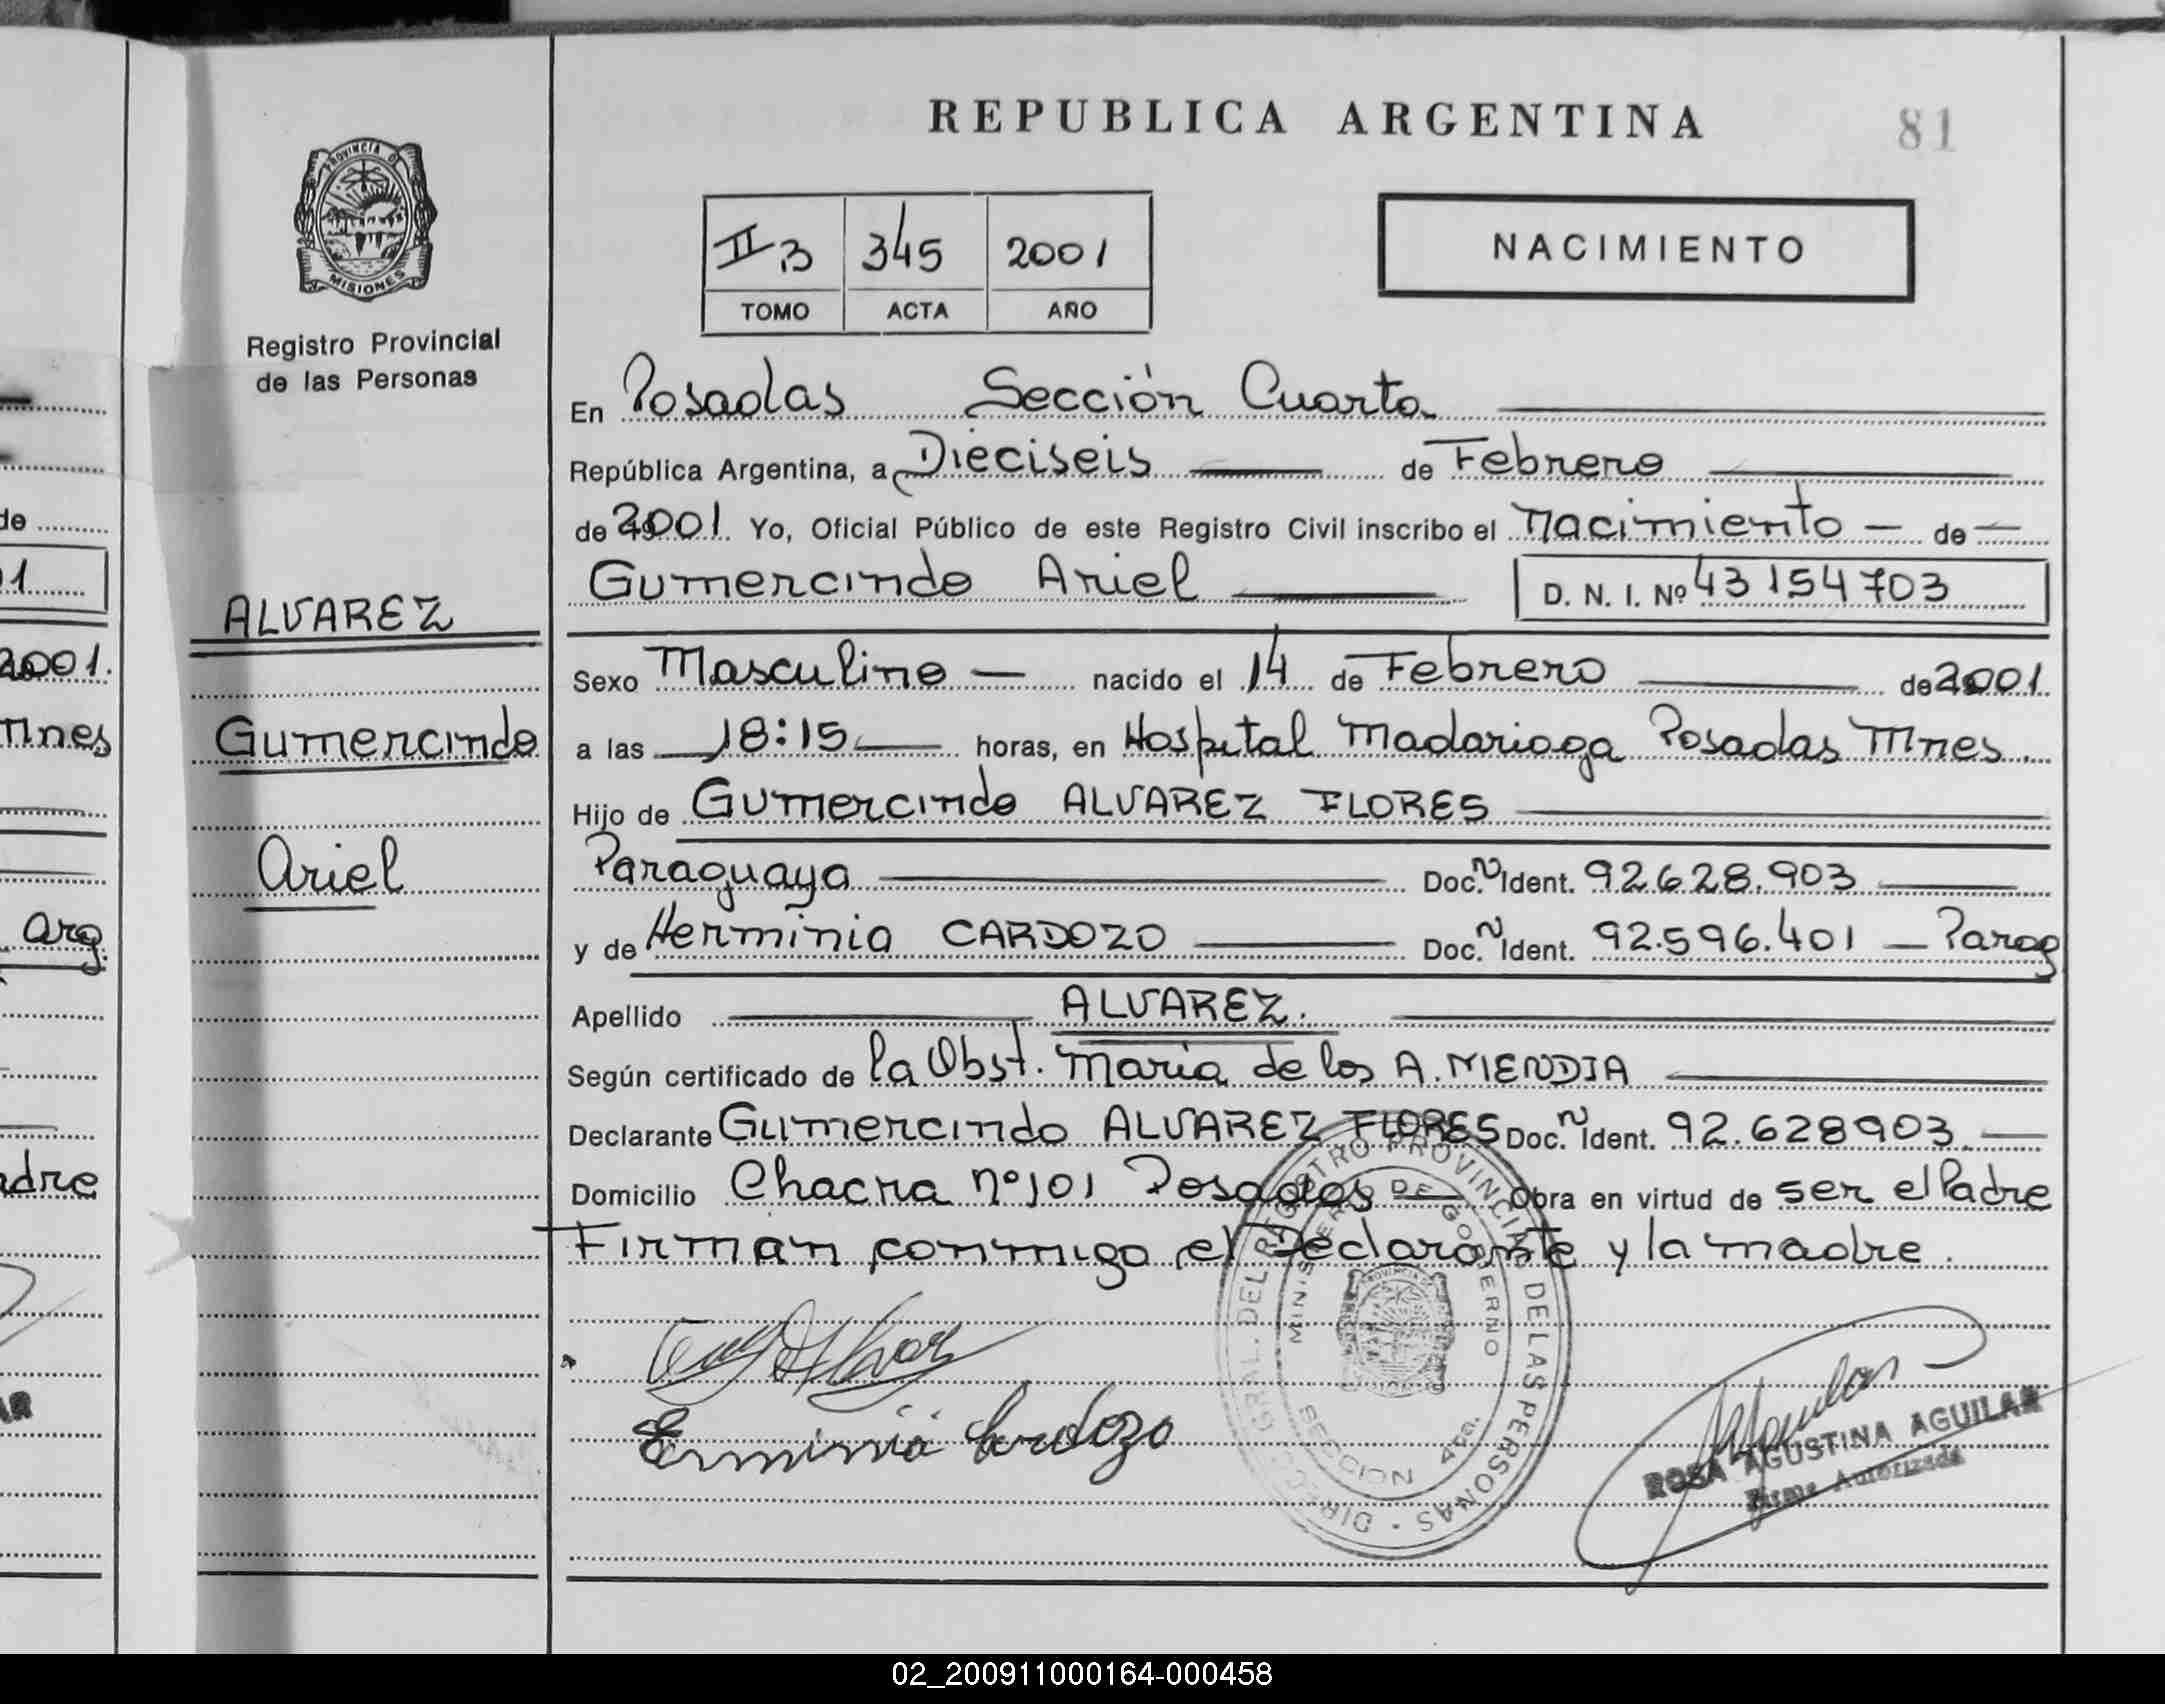 REPUBLICA ARGENTINA
81
PROVINCIA DE
MISIONES
Registro Provincial
de las Personas
II B 345 2001
TOMO ACTA AÑO
NACIMIENTO
En Posadas Sección Cuarta
República Argentina, a Dieciseis de Febrero
de 2001 Yo, Oficial Público de este Registro Civil inscribo el nacimiento de
Gumercindo Ariel D. N. I. Nº 43154703
ALVAREZ
Gumercindo
Ariel
Sexo Masculino nacido el 14 de Febrero de 2001
a las 18:15 horas, en Hospital Madariaga Posadas Mnes.
Hijo de Gumercindo ALVAREZ FLORES
Paraguaya Doc. Ident. 92628.903
y de Herminia CARDOZO Doc. Ident. 92.596.401 Parag
Apellido ALVAREZ.
Según certificado de la Obst. María de los A. MENDIA
Declarante Gumercindo ALVAREZ FLORES Doc. Ident. 92.628903.
Domicilio Chacra nº101 Posadas Obra en virtud de ser el Padre
Firman conmigo el Declarante y la madre.
Erminia Cardozo
DIRECC. GRAL. DEL REGISTRO PROVINCIAL DE LAS PERSONAS
MINISTERIO DE GOBIERNO
SECCION 4ta.
ROSA AGUSTINA AGUILAR
Firma Autorizada
de
01
2001.
Mnes
Arg.
adre
AR
02_200911000164-000458